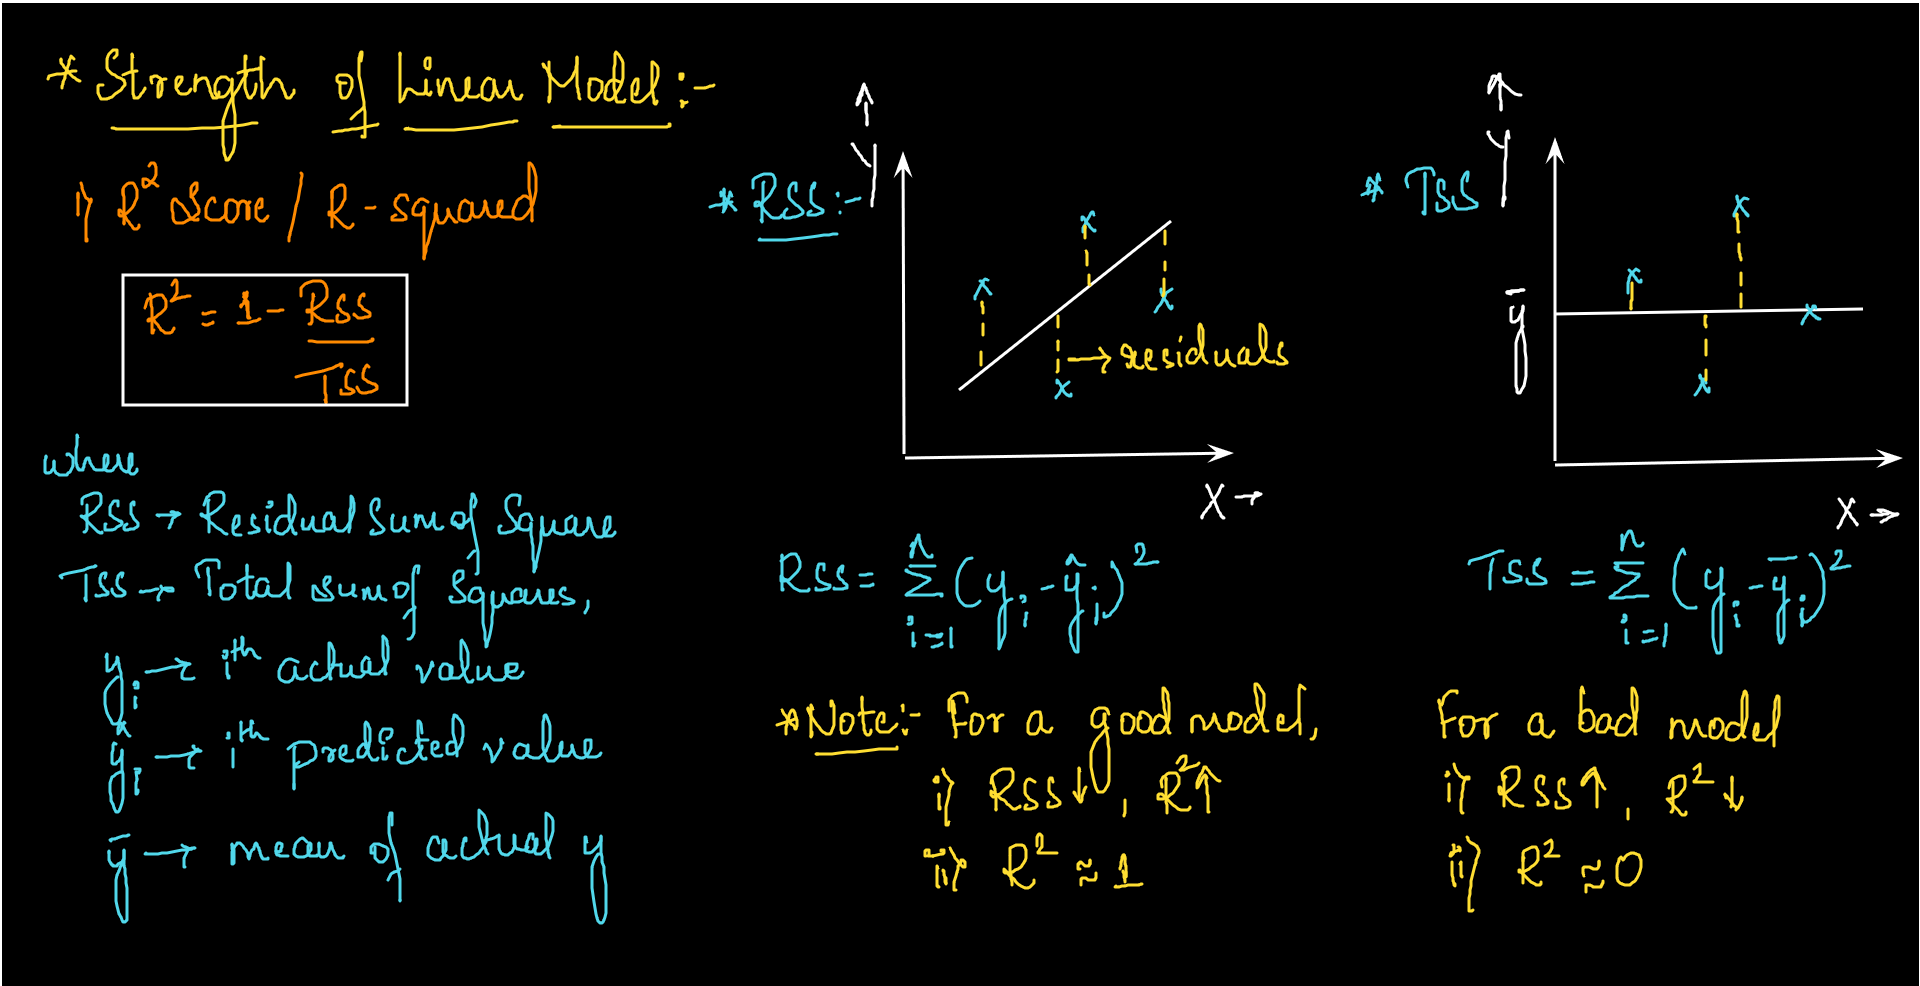 * Strength of Linear Model:-
i) R² Score / R-squared
R² = 1 - RSS
TSS
where
RSS → Residual Sum of Square
TSS → Total sum of Squares,
yᵢ → iᵗʰ actual value
ŷᵢ → iᵗʰ predicted value
ȳ → mean of actual y
* RSS:-
Y
→ residuals
X →
RSS = Σ (yᵢ - ŷᵢ)²
n
i=1
* Note:- For a good model,
i) RSS↓, R²↑
ii) R² ≈ 1
* TSS
Y
ȳ
X →
TSS = Σ (yᵢ - ȳᵢ)²
n
i=1
For a bad model
i) RSS↑, R²↓
ii) R² ≈ 0